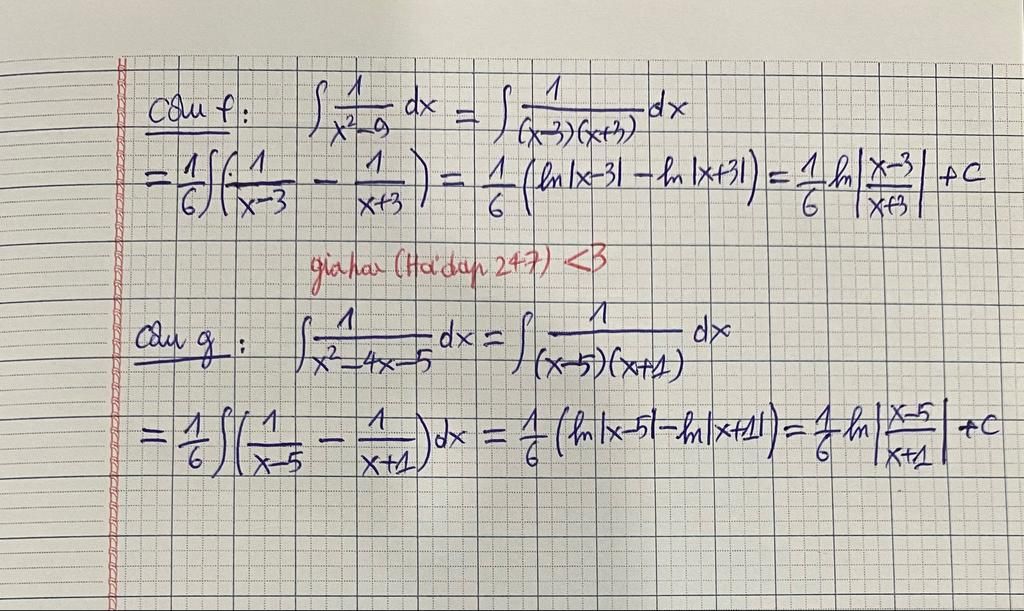 Câu f: ∫ 1/(x²-9) dx = ∫ 1/((x-3)(x+3)) dx
= 1/6 ∫ (1/(x-3) - 1/(x+3)) = 1/6 (ln|x-3| - ln|x+3|) = 1/6 ln|(x-3)/(x+3)| + C
giahan (Hoidap 247) <3
Câu g: ∫ 1/(x²-4x-5) dx = ∫ 1/((x-5)(x+1)) dx
= 1/6 ∫ (1/(x-5) - 1/(x+1)) dx = 1/6 (ln|x-5| - ln|x+1|) = 1/6 ln|(x-5)/(x+1)| + C